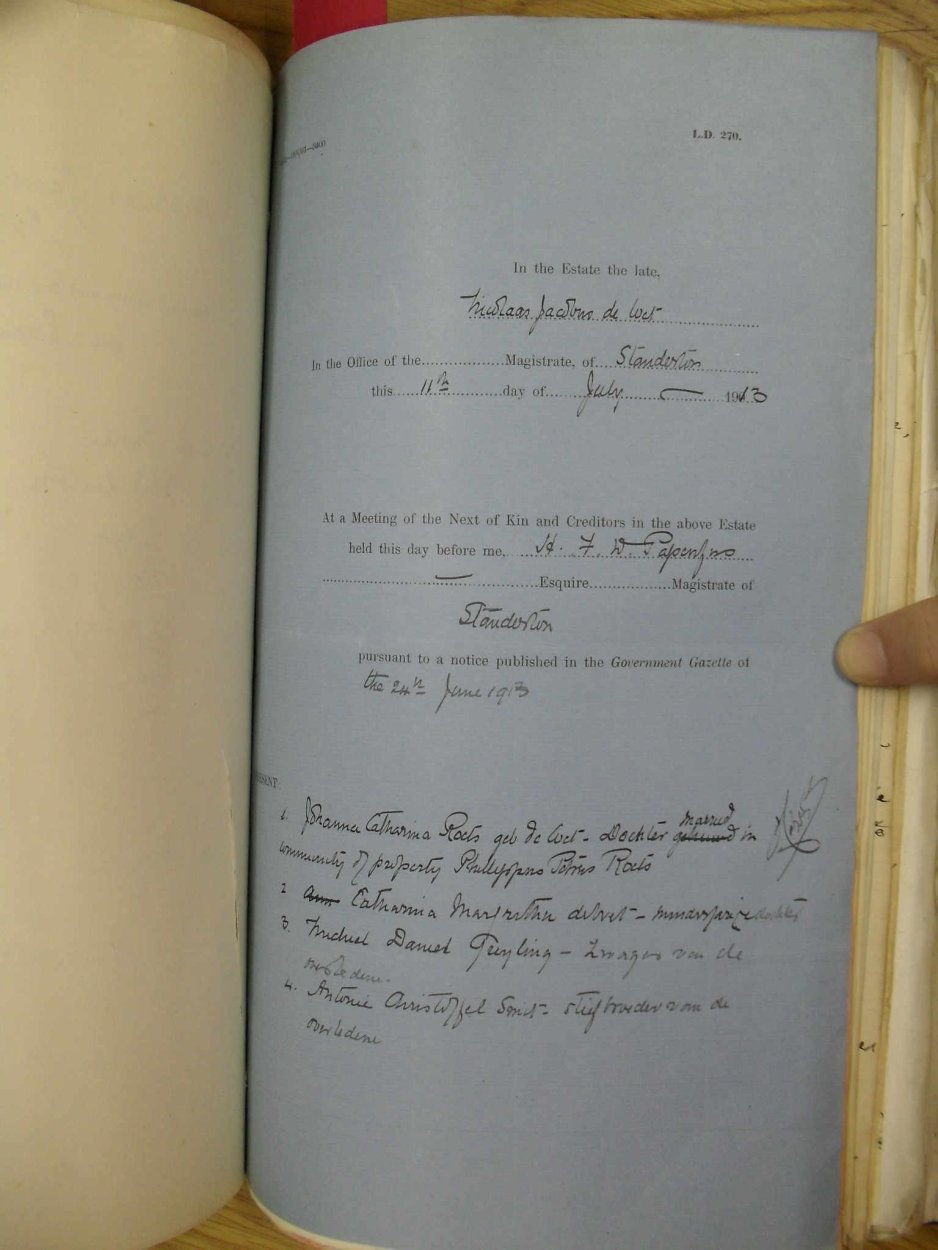 L.D. 270.
In the Estate the late,
Nicolaas Jacobus de Wet
In the Office of the................Magistrate, of Standerton
this 11th day of July — 1913
At a Meeting of the Next of Kin and Creditors in the above Estate
held this day before me, H. F. W. Papenfus
— Esquire................Magistrate of
Standerton
pursuant to a notice published in the Government Gazette of
the 24th June 1913
1. Johanna Catharina Roets geb de Wet - Dochter married in
community of property Phillippus Petrus Roets
2 Catharina Margretha de Wet - minderjarige dochter
3. Michiel Daniel Greyling - Zwager van de
overledene.
4. Antonie Christoffel Smit - stiefbroeder van de
overledene